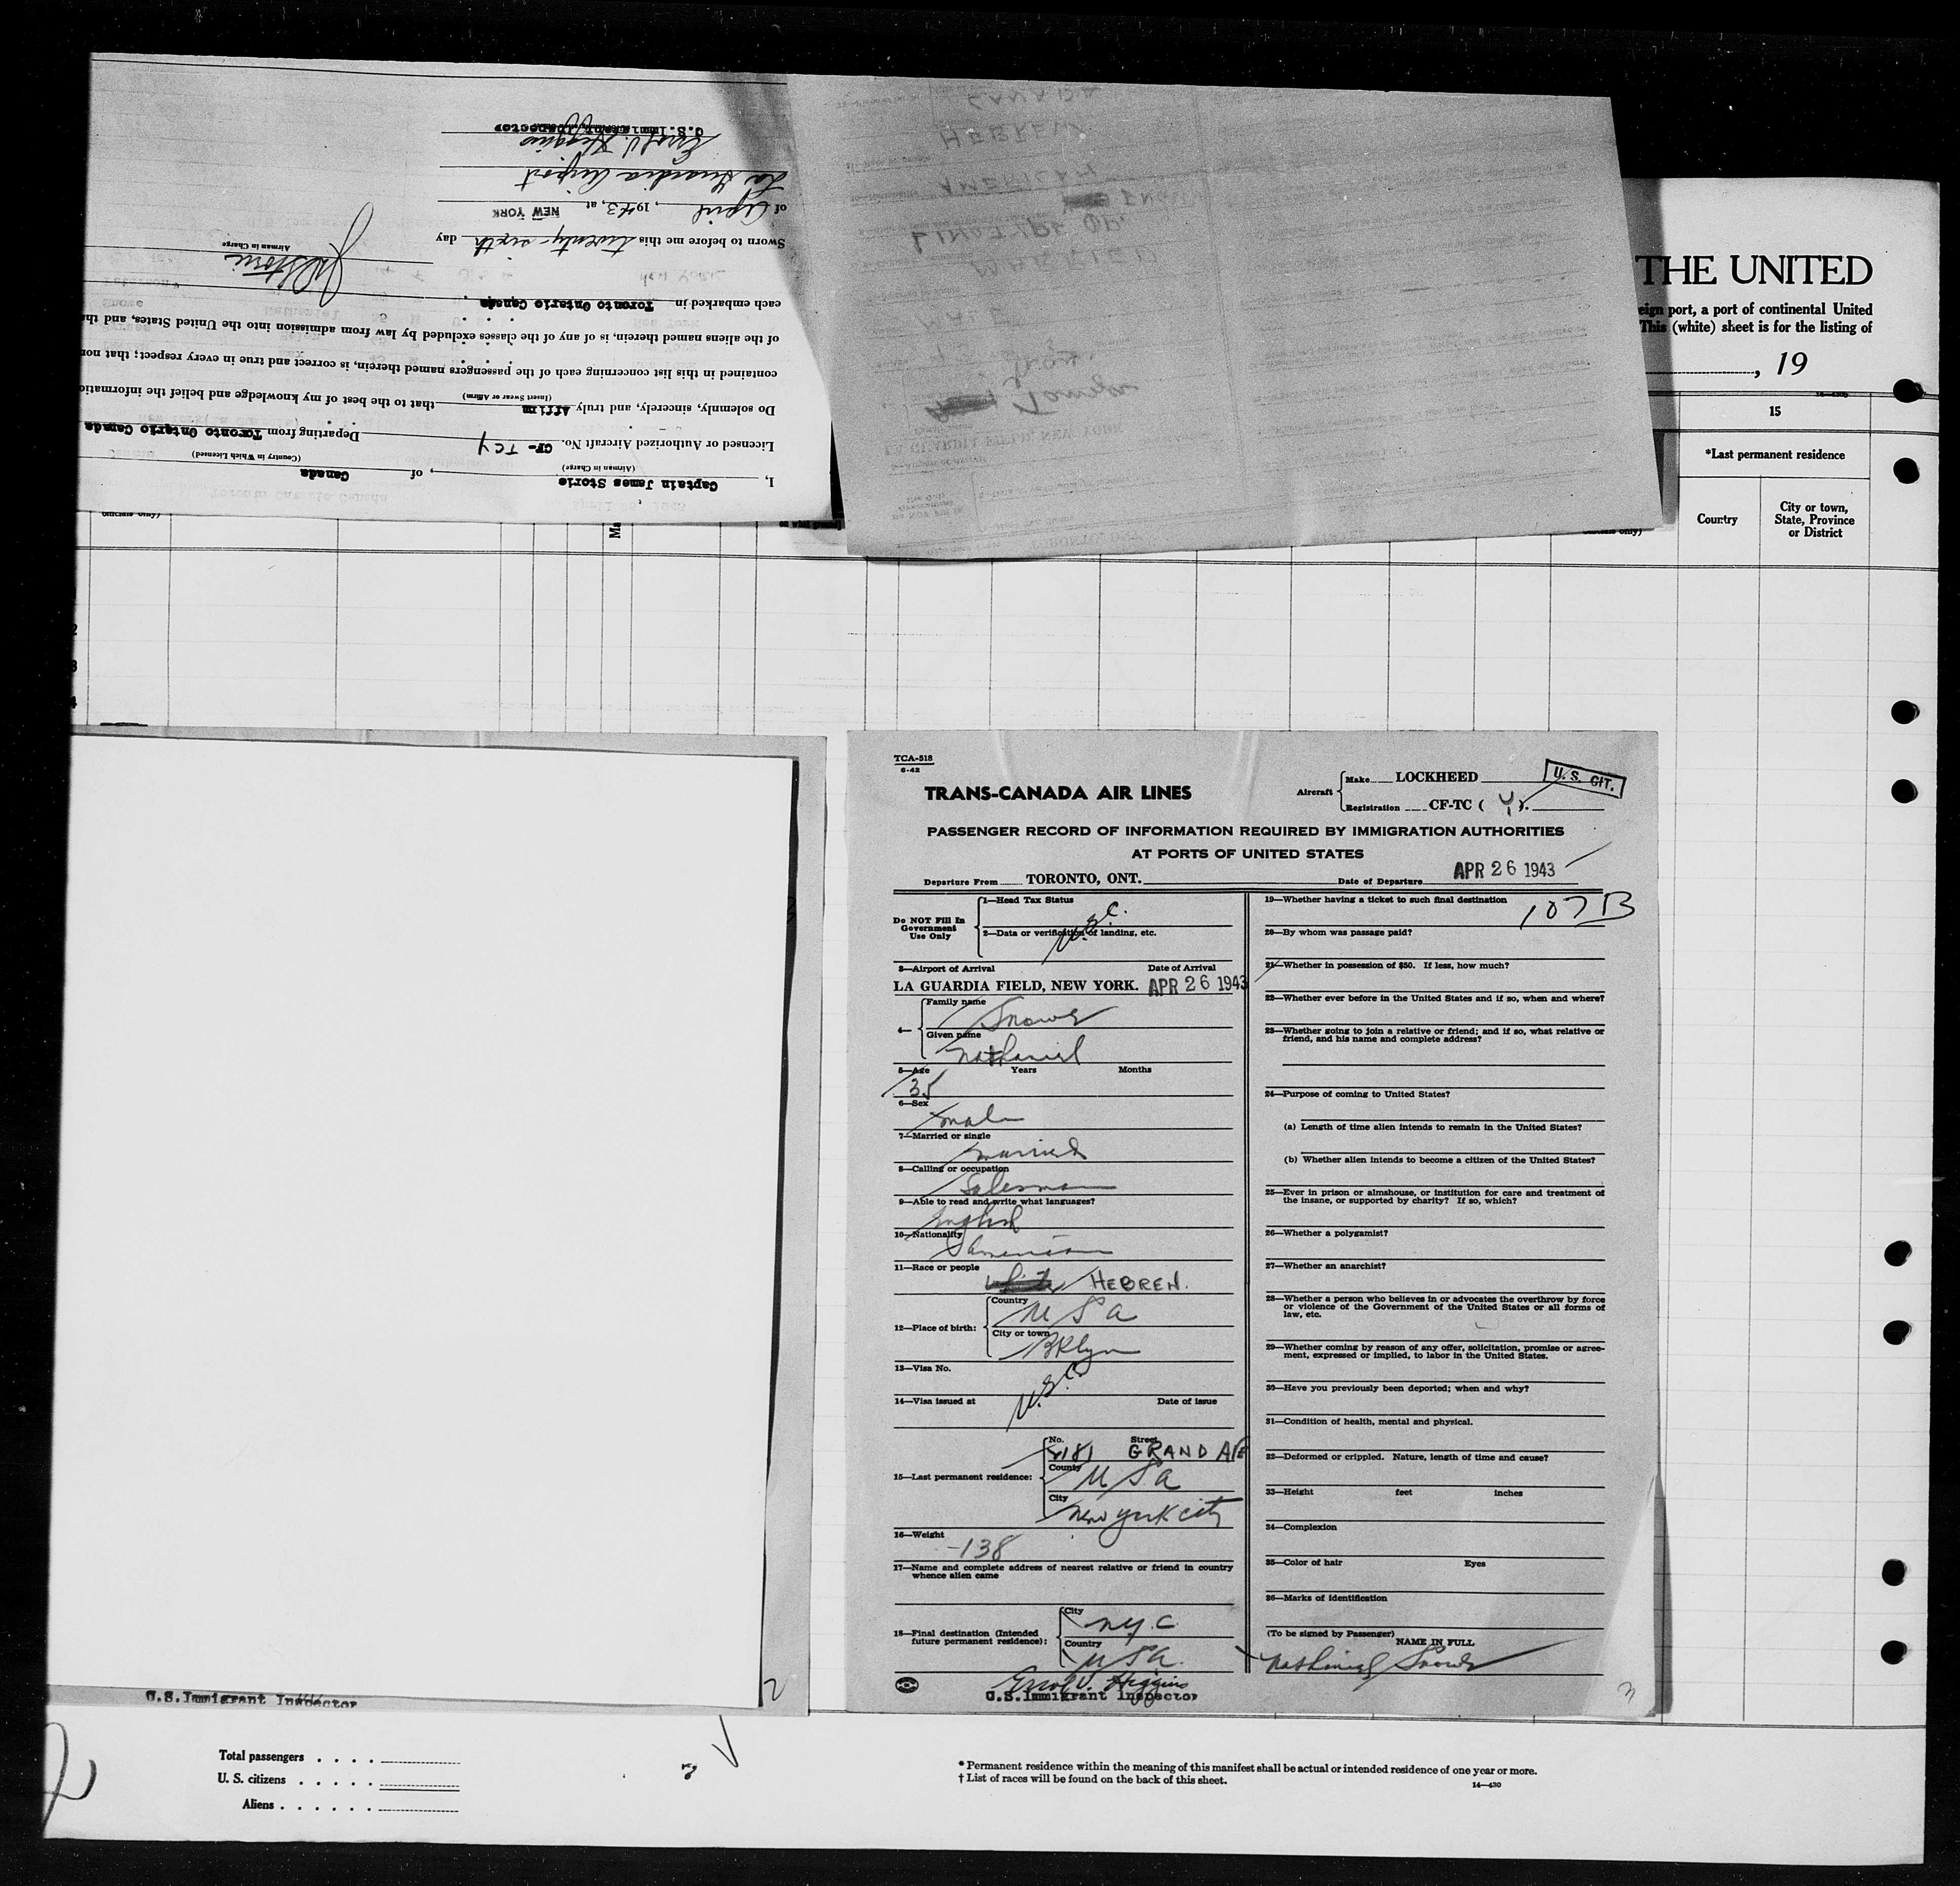 I, Captain James Storie, of Canada
(Airman in Charge) (Country in Which Licensed)
Licensed or Authorized Aircraft No. CF-TCY Departing from Toronto Ontario Canada
Do solemnly, sincerely, and truly Affirm that to the best of my knowledge and belief the informatio
(Insert Swear or Affirm)
contained in this list concerning each of the passengers named therein, is correct and true in every respect; that non
of the aliens named therein, is of any of the classes excluded by law from admission into the United States, and th
each embarked in Toronto Ontario Canada
Airman in Charge
Sworn to before me this twenty-sixth day
of April, 1943, at NEW YORK
La Guardia Airport
Errol V. Higgins
U.S. Immigrant Inspector
CANADA
HEBREW
AMERICAN
LINOTYPE OP.
MARRIED
MALE
THE UNITED
eign port, a port of continental United
This (white) sheet is for the listing of
, 19
15
*Last permanent residence
Country
City or town,
State, Province
or District
TCA-518
6-42
TRANS-CANADA AIR LINES
Aircraft Make LOCKHEED
Registration CF-TC ( Y ).
U. S. CIT.
PASSENGER RECORD OF INFORMATION REQUIRED BY IMMIGRATION AUTHORITIES
AT PORTS OF UNITED STATES
Departure From TORONTO, ONT. Date of Departure APR 26 1943
Do NOT Fill In
Government
Use Only
1—Head Tax Status
U.S.C.
2—Data or verification of landing, etc.
3—Airport of Arrival Date of Arrival
LA GUARDIA FIELD, NEW YORK. APR 26 1943
4— Family name
Snowe
Given name
Nathaniel
5—Age Years Months
35
6—Sex
male
7—Married or single
married
8—Calling or occupation
Salesman
9—Able to read and write what languages?
English
10—Nationality
American
11—Race or people
white HEBREW.
12—Place of birth:
Country
U S A
City or town
BKlyn
13—Visa No.
U.S.C.
14—Visa issued at Date of issue
15—Last permanent residence:
No. Street
2181 GRAND AVE
County
U S A
City
New York City
16—Weight
-138
17—Name and complete address of nearest relative or friend in country
whence alien came
18—Final destination (Intended
future permanent residence):
City
N.Y.C.
Country
U S A.
Errol V. Higgins
U.S.Immigrant Inspector
19—Whether having a ticket to such final destination
107 B
20—By whom was passage paid?
21—Whether in possession of $50. If less, how much?
22—Whether ever before in the United States and if so, when and where?
23—Whether going to join a relative or friend; and if so, what relative or
friend, and his name and complete address?
24—Purpose of coming to United States?
(a) Length of time alien intends to remain in the United States?
(b) Whether alien intends to become a citizen of the United States?
25—Ever in prison or almshouse, or institution for care and treatment of
the insane, or supported by charity? If so, which?
26—Whether a polygamist?
27—Whether an anarchist?
28—Whether a person who believes in or advocates the overthrow by force
or violence of the Government of the United States or all forms of
law, etc.
29—Whether coming by reason of any offer, solicitation, promise or agree-
ment, expressed or implied, to labor in the United States.
30—Have you previously been deported; when and why?
31—Condition of health, mental and physical.
32—Deformed or crippled. Nature, length of time and cause?
33—Height feet inches
34—Complexion
35—Color of hair Eyes
36—Marks of identification
(To be signed by Passenger) NAME IN FULL
Nathaniel Snowe
3
U.S.Immigrant Inspector
2
Total passengers . . . .
U. S. citizens . . . . .
Aliens . . . . . .
* Permanent residence within the meaning of this manifest shall be actual or intended residence of one year or more.
† List of races will be found on the back of this sheet.
14—430